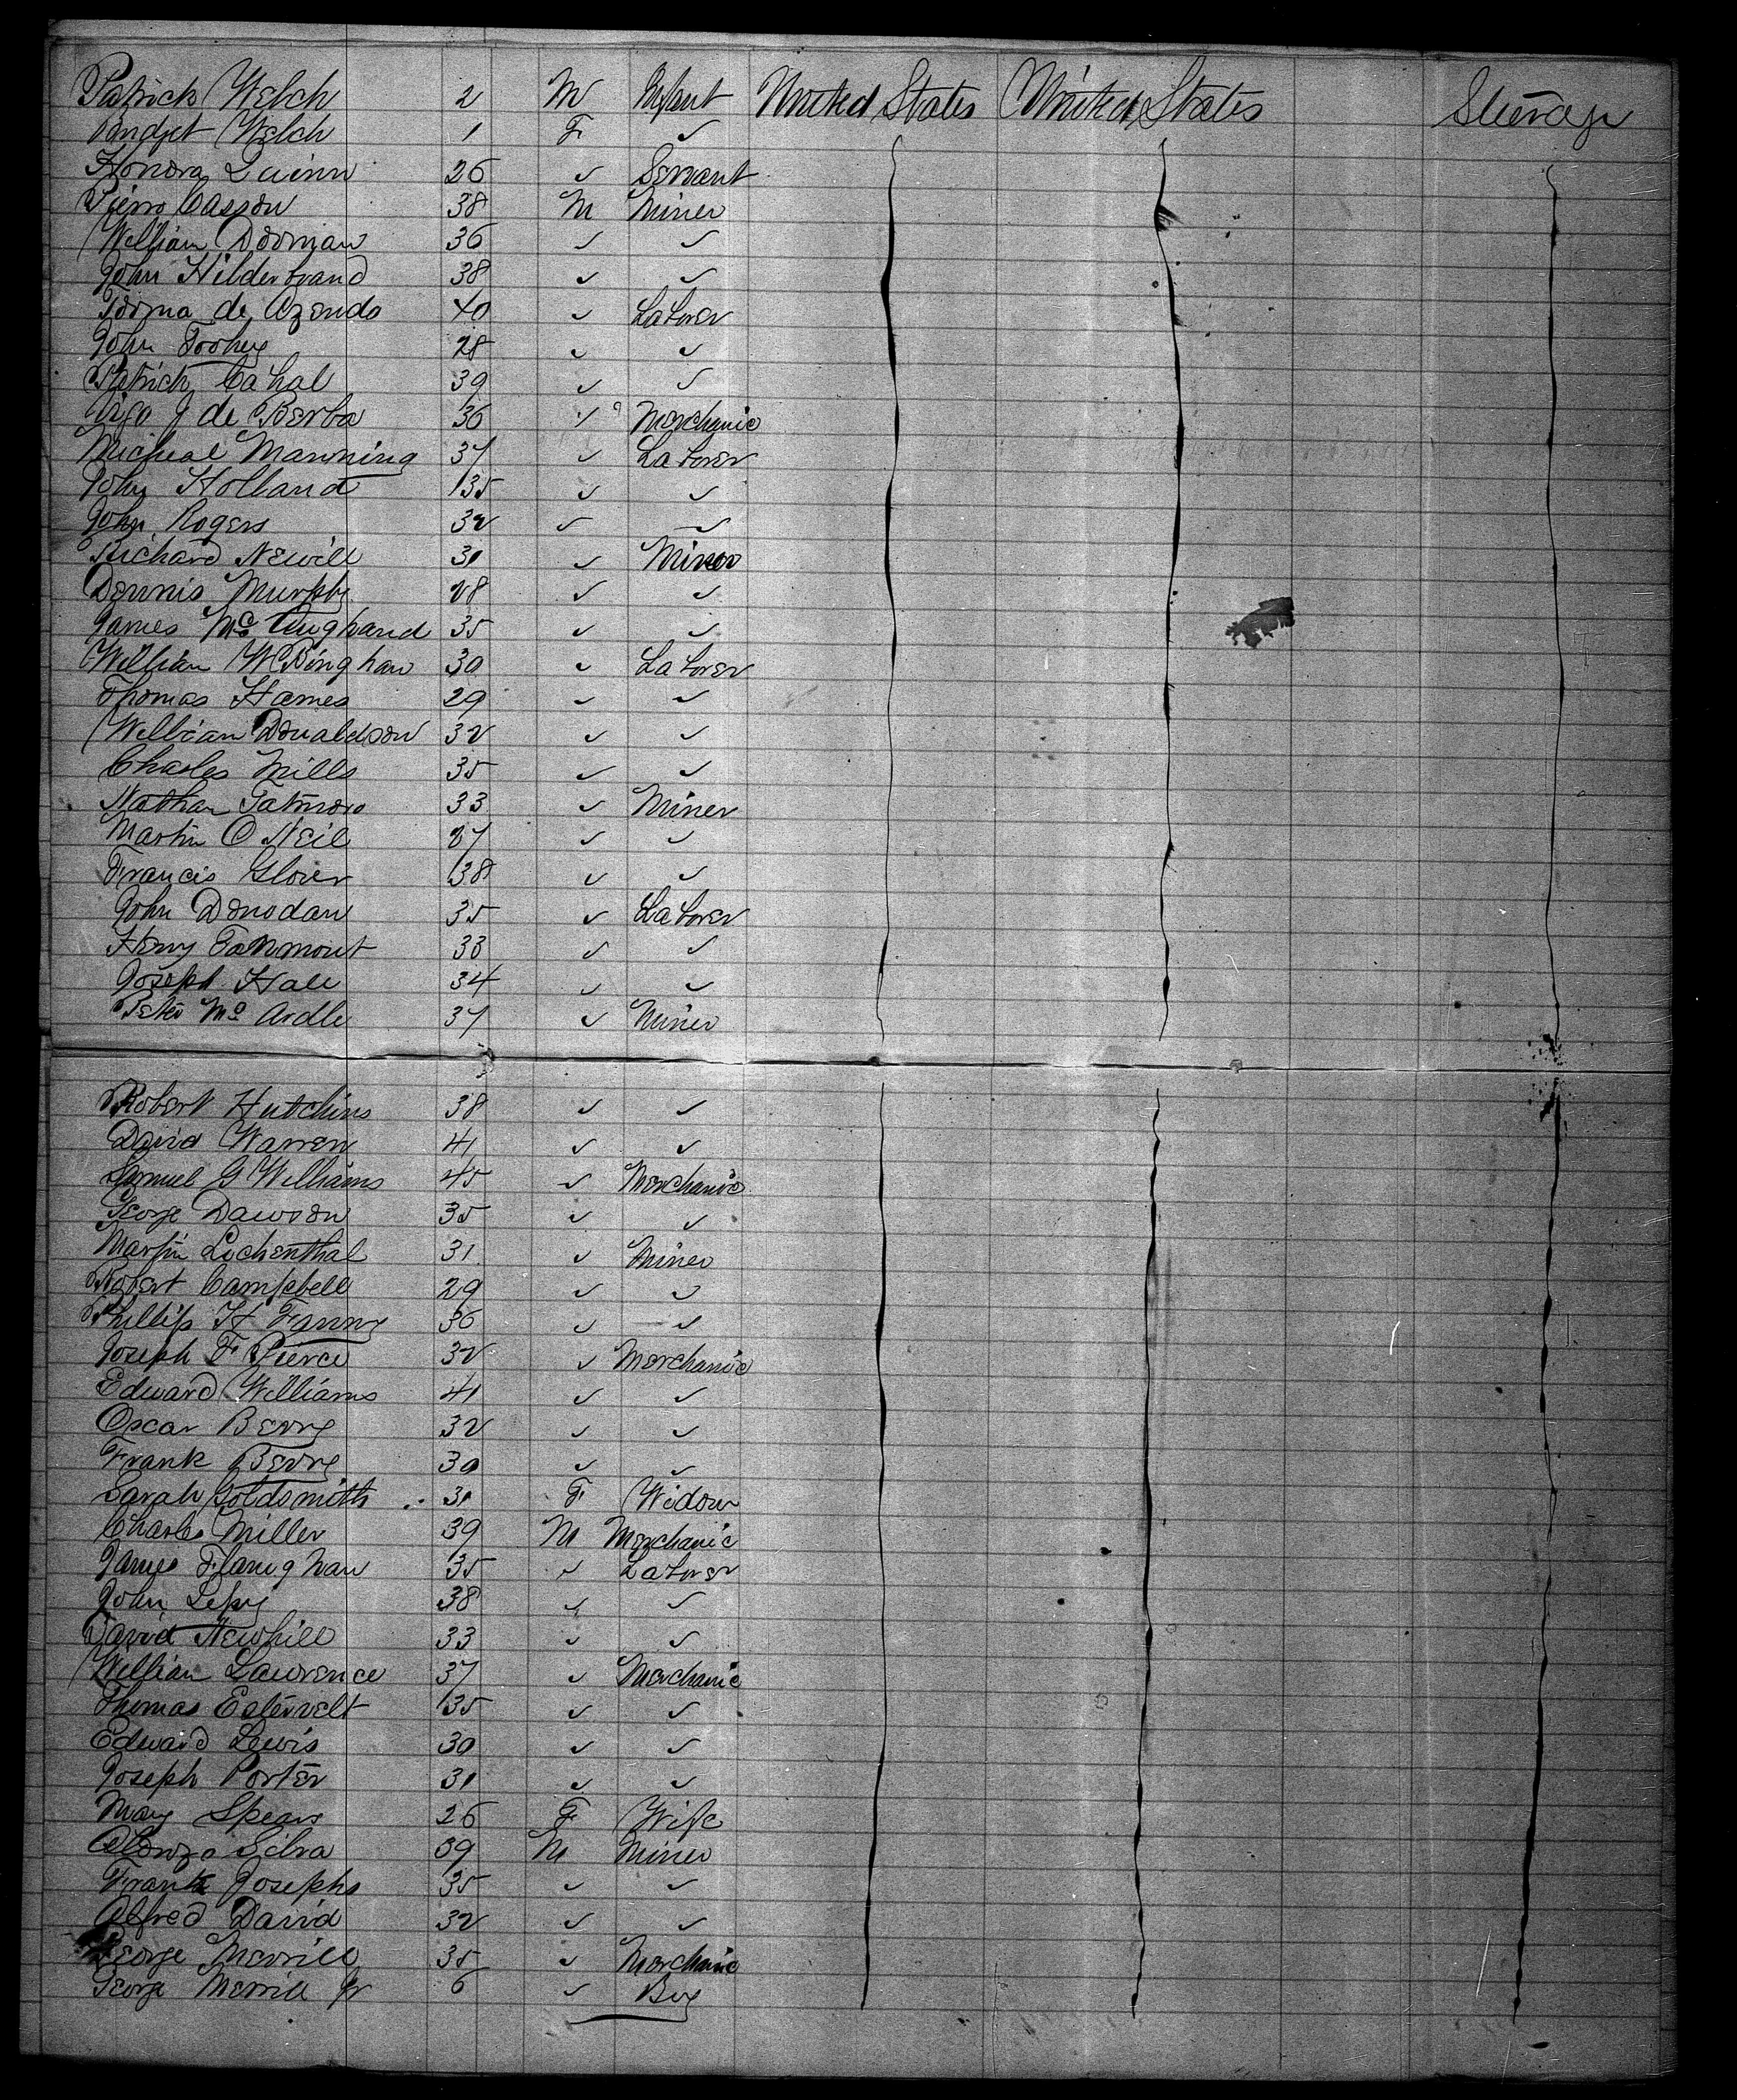 Patrick Welch 2 M Infant United States United States Steerage
Bridget Welch 1 F ✓
Honora Quinn 26 ✓ Servant
Pierro Casson 38 M Miner
William Dorman 36 ✓ ✓
John Hilderbrand 38 ✓ ✓
de Azendo 40 ✓ Laborer
John Toohey 28 ✓ ✓
Patrick Cahal 39 ✓ ✓
J de Berba 36 ✓ Merchanic
Micheal Manning 37 ✓ Laborer
John Holland 35 ✓ ✓
John Rogers 32 ✓ ✓
Richard Newill 31 ✓ Miner
Dennis Murphy 28 ✓ ✓
James Mc 35 ✓ ✓
William 30 ✓ Laborer
Thomas Hames 29 ✓ ✓
William Donaldson 32 ✓ ✓
Charles Mills 35 ✓ ✓
Nathan 33 ✓ Miner
Martin O Neil 27 ✓ ✓
Francis Glover 38 ✓ ✓
John Donodan 35 ✓ Laborer
Henry 33 ✓ ✓
Joseph Hall 34 ✓ ✓
Peter Mc Ardle 37 ✓ Miner
Robert Hutchins 38 ✓ ✓
David Warren 41 ✓ ✓
Samuel G Williams 45 ✓ Merchanic
George Dawson 35 ✓ ✓
Martin Lichenthal 31 ✓ Miner
Robert Campbell 29 ✓ ✓
Phillip H Fanny 36 ✓ ✓
Joseph F Pierce 32 ✓ Merchanic
Edward Williams 41 ✓ ✓
Oscar Berry 32 ✓ ✓
Frank Berry 30 ✓ ✓
Sarah Goldsmith 31 F Widow
Charles Miller 39 M Merchanic
James Flanighan 35 ✓ Laborer
John 38 ✓ ✓
David Newhill 33 ✓ ✓
William Lawrence 37 ✓ Merchanic
Thomas Estervelt 35 ✓ ✓
Edward Lewis 30 ✓ ✓
Joseph Porter 31 ✓ ✓
Mary Spears 26 F Wife
Alonzo Silva 39 M Miner
Frank Josephs 35 ✓ ✓
Alfred David 32 ✓ ✓
George Merrill 35 ✓ Merchanic
George Merrill Jr 6 ✓ Boy